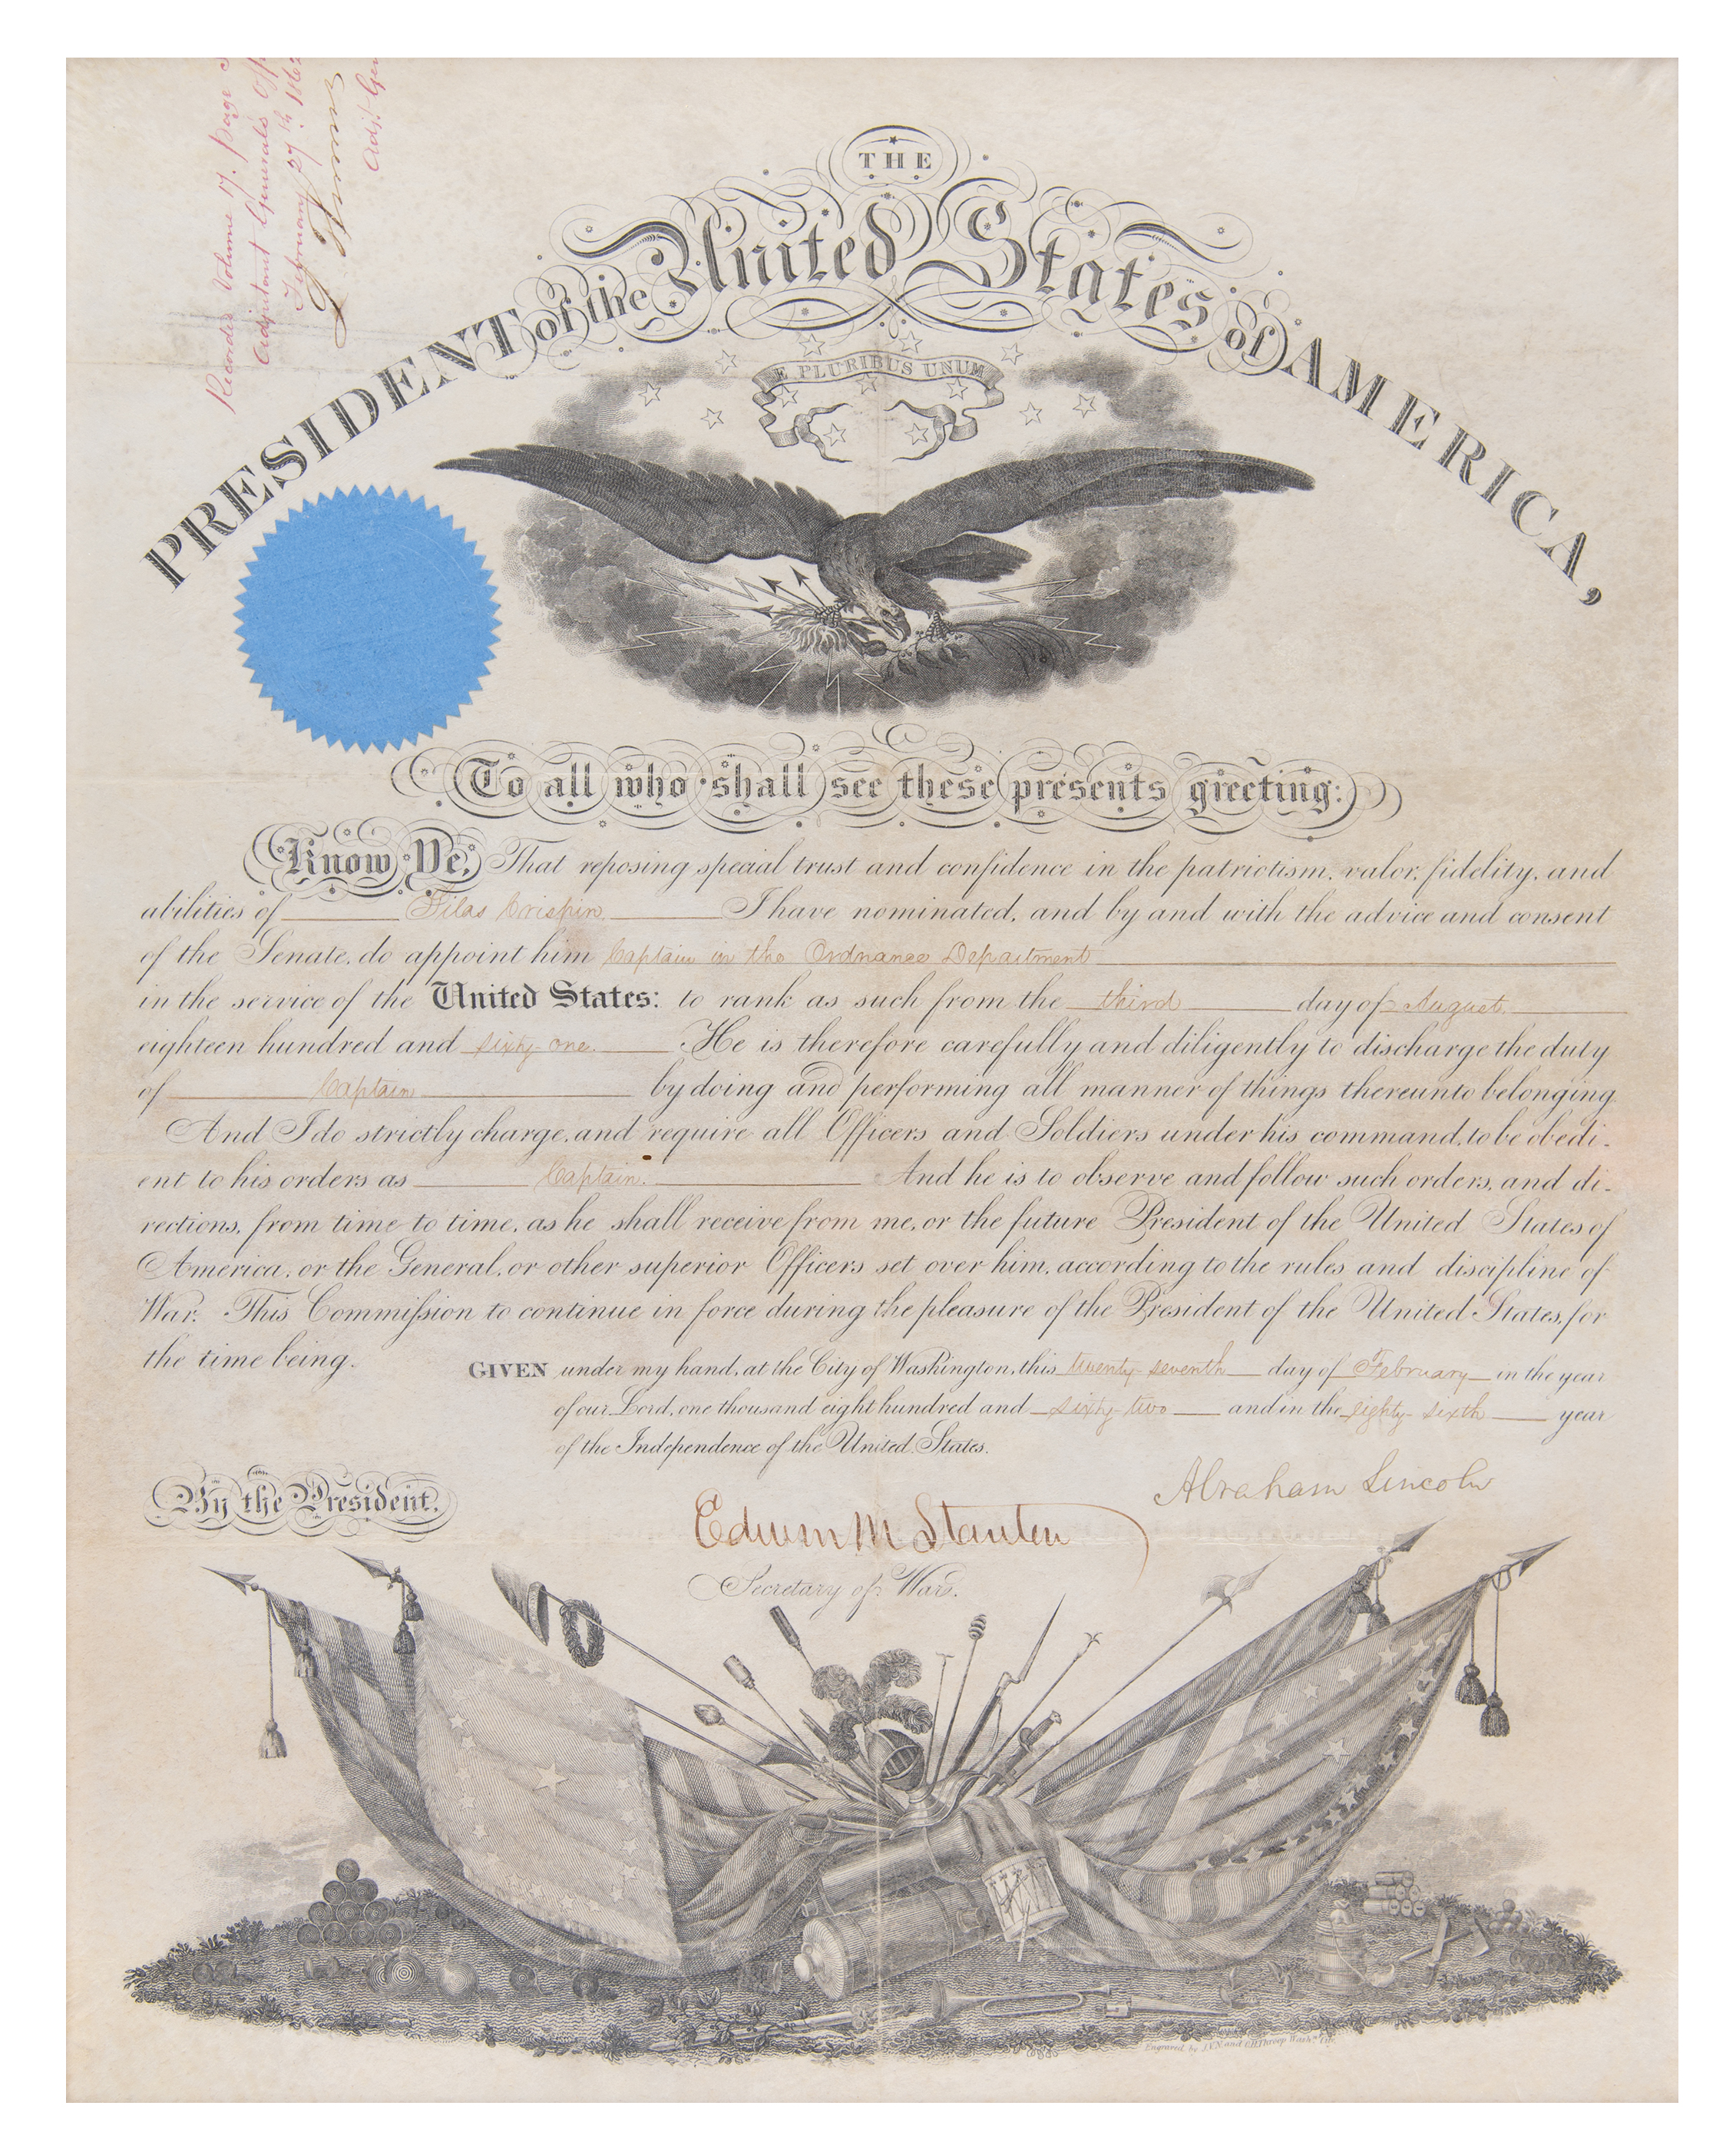 Recorded Volume 17. Page
Adjutant Generals Off
February 27th 1862
L Thomas
Adjt Gen
THE
PRESIDENT of the United States of AMERICA,
E PLURIBUS UNUM
To all who shall see these presents greeting:
Know Ye, That reposing special trust and confidence in the patriotism, valor, fidelity, and
abilities of Silas Crispin I have nominated, and by and with the advice and consent
of the Senate, do appoint him Captain in the Ordnance Department
in the service of the United States: to rank as such from the third day of August
eighteen hundred and sixty-one. He is therefore carefully and diligently to discharge the duty
of Captain by doing and performing all manner of things thereunto belonging.
And I do strictly charge, and require all Officers and Soldiers under his command, to be obedi-
ent to his orders as Captain. And he is to observe and follow such orders, and di-
rections, from time to time, as he shall receive from me, or the future President of the United States of
America, or the General, or other superior Officers set over him, according to the rules and discipline of
War. This Commission to continue in force during the pleasure of the President of the United States, for
the time being.
GIVEN under my hand, at the City of Washington, this twenty-seventh day of February in the year
of our Lord, one thousand eight hundred and sixty-two and in the eighty-sixth year
of the Independence of the United States.
By the President,
Abraham Lincoln
Edwin M Stanton
Secretary of War.
Engraved by J.V.N. and O.H. Throop Washn. City.